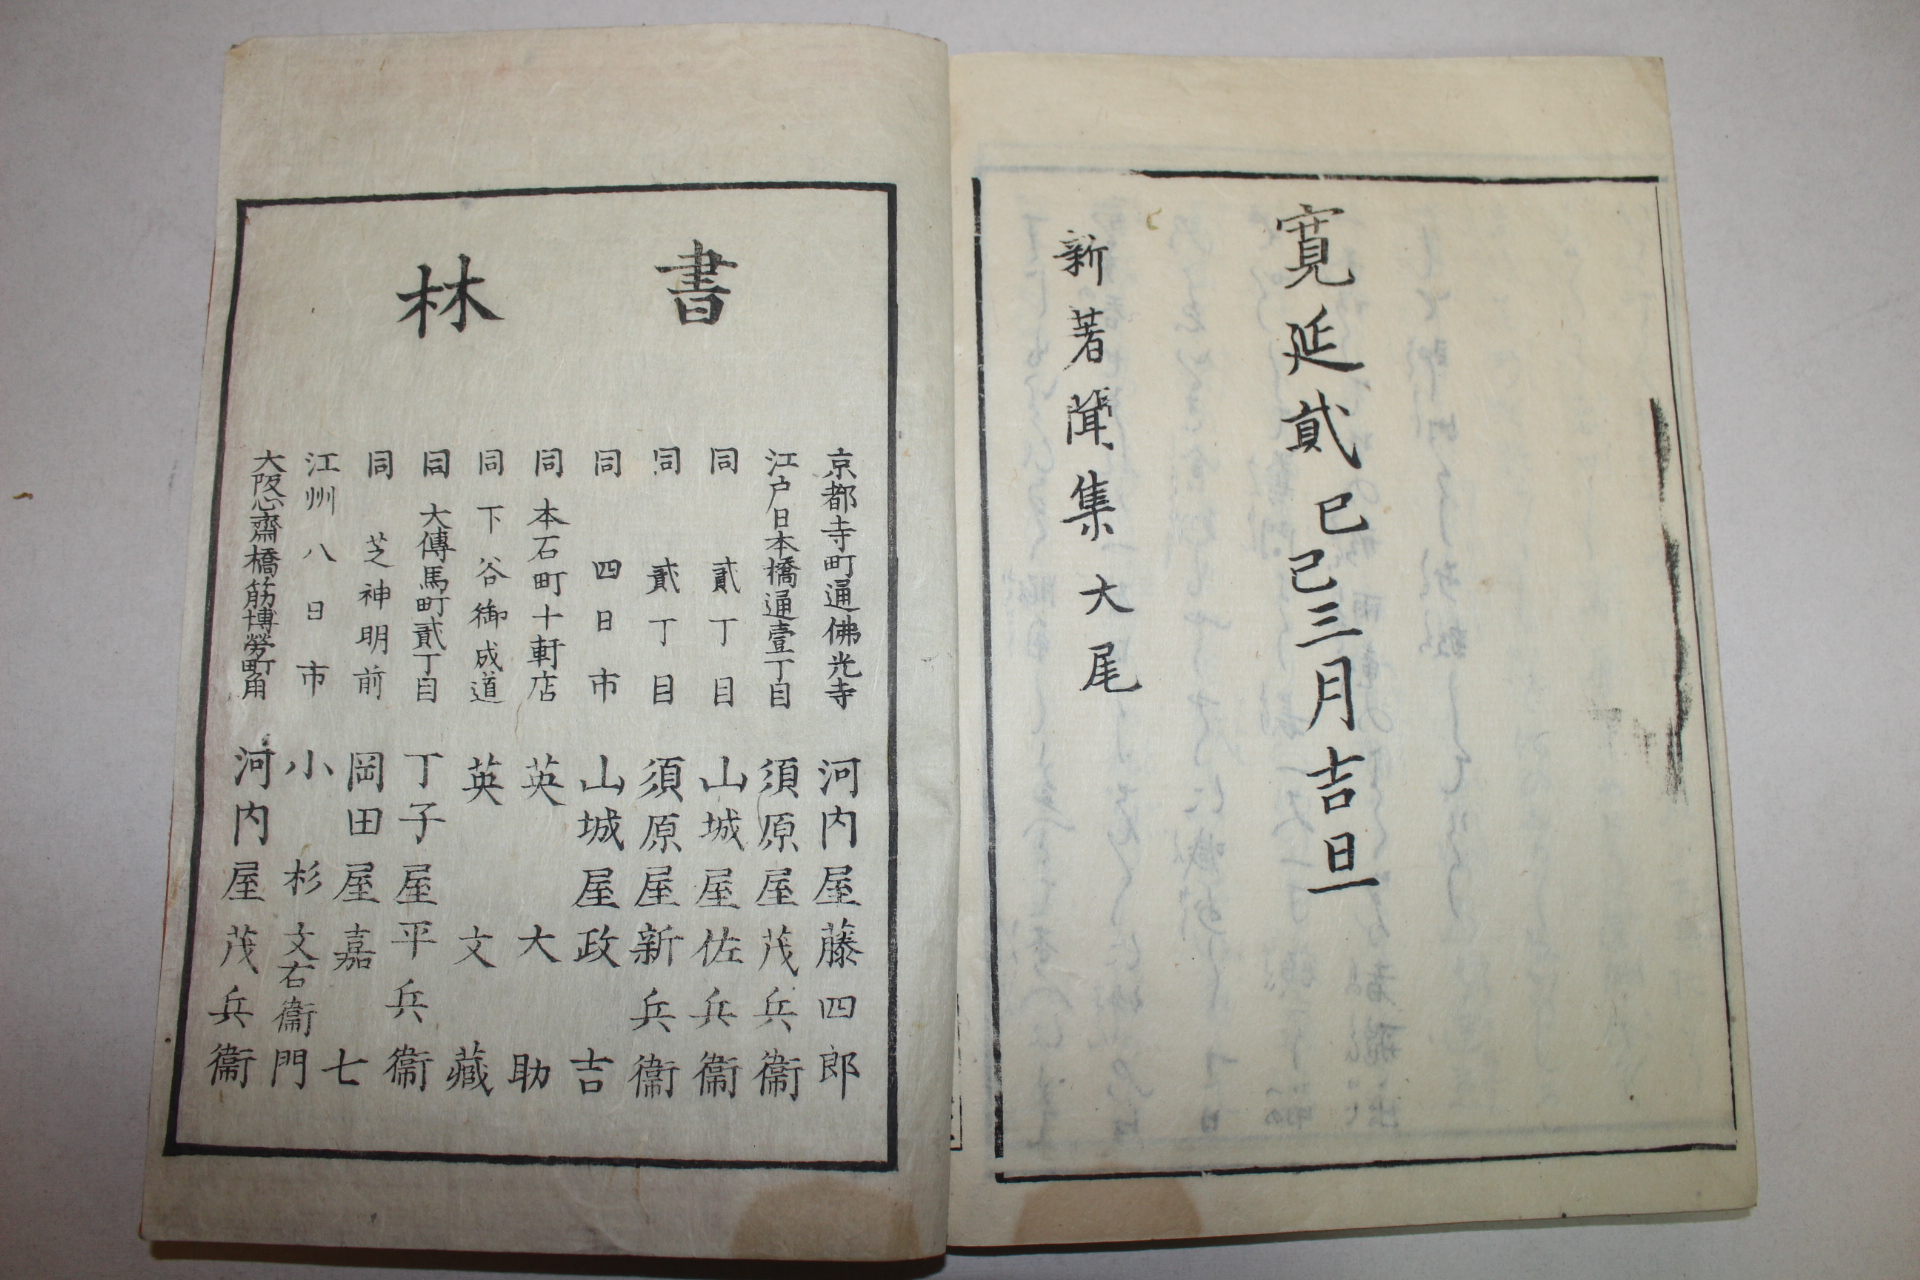 寛延貳己巳三月吉旦
新著聞集大尾
書林
京都寺町通佛光寺 河内屋藤四郎
江戸日本橋通壹丁目 須原屋茂兵衞
同 貳丁目 山城屋佐兵衞
同 貳丁目 須原屋新兵衞
同 四日市 山城屋政吉
同 本石町十軒店 英大助
同 下谷御成道 英文藏
同 大傳馬町貳丁目 丁子屋平兵衞
同 芝神明前 岡田屋嘉七
江州八日市 小杉文右衞門
大阪心齋橋筋博勞町角 河内屋茂兵衞